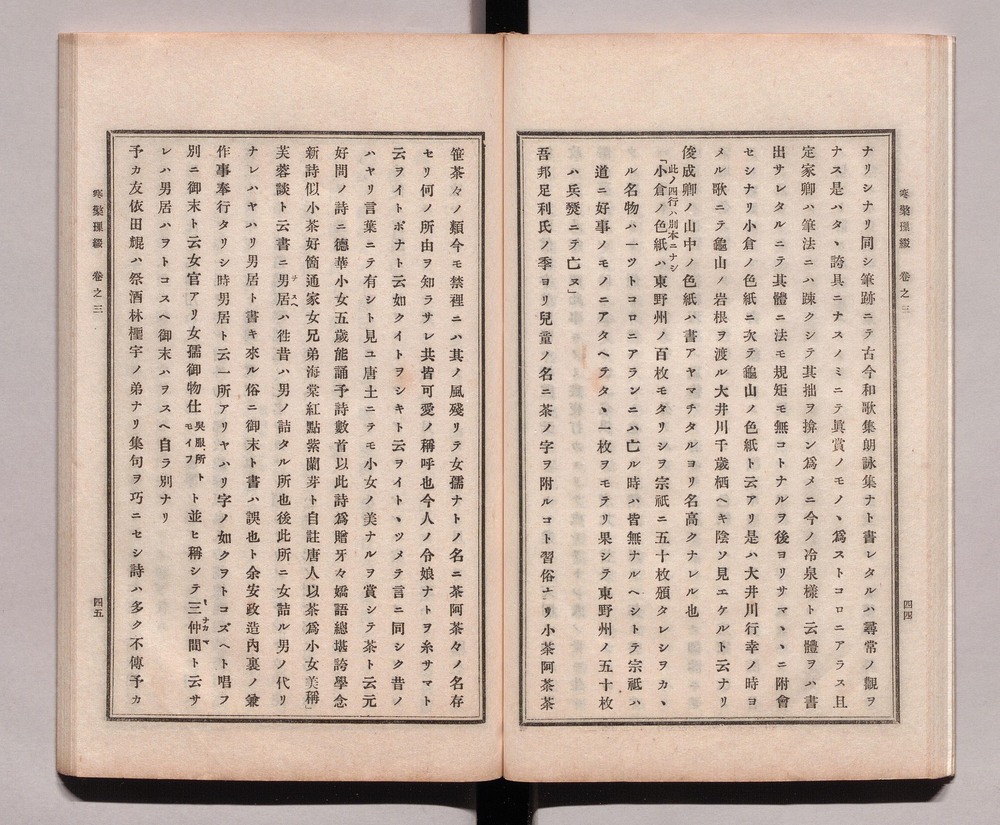 寒檠璅綴 卷之三
四四
ナリシナリ同シ筆跡ニテ古今和歌集朗詠集ナト書レタルハ尋常ノ觀ヲ
ナス是ハタヽ誇具ニナスノミニテ眞賞ノモノヽ爲ストコロニアラス且
定家卿ハ筆法ニハ踈クシテ其拙ヲ揜ン爲メニ今ノ冷泉樣ト云體ヲハ書
出サレタルニテ其體ニ法モ規矩モ無コトナルヲ後ヨリサマヽヽニ附會
セシナリ小倉ノ色紙ニ次テ龜山ノ色紙ト云アリ是ハ大井川行幸ノ時ヨ
メル歌ニテ龜山ノ岩根ヲ渡ル大井川千歳栖ヘキ陰ソ見エケルト云ナリ
俊成卿ノ山中ノ色紙ハ書アヤマチタルヨリ名高クナレル也
此ノ四行ハ別本ニナシ
「小倉ノ色紙ハ東野州ノ百枚モタリシヲ宗祇ニ五十枚頒タレシヲカヽ
ル名物ハ一ツトコロニアランニハ亡ル時ハ皆無ナルヘシトテ宗祇ハ
道ニ好事ノモノニアタヘラタヽ一枚ヲモテリ果シテ東野州ノ五十枚
ハ兵燹ニテ亡ヌ」
吾邦足利氏ノ季ヨリ兒童ノ名ニ茶ノ字ヲ附ルコト習俗ナリ小茶阿茶茶
笹茶々ノ類今モ禁裡ニハ其ノ風殘リテ女孺ナトノ名ニ茶阿茶々ノ名存
セリ何ノ所由ヲ知ラサレ共皆可愛ノ稱呼也今人ノ令娘ナトヲ糸サマト
云ヲイトボナト云如クイトヲシキト云ヲイトヽツメテ言ニ同シク昔ノ
ハヤリ言葉ニテ有シト見ユ唐土ニテモ小女ノ美ナルヲ賞シテ茶ト云元
好問ノ詩ニ德華小女五歲能誦予詩數首以此詩爲贈牙々嬌語總堪誇學念
新詩似小茶好箇通家女兄弟海棠紅點紫蘭芽ト自註唐人以茶爲小女美稱」
芙蓉談ト云書ニ男居ハ徃昔ハ男ノ詰タル所也後此所ニ女詰ル男ノ代リ
ナレハヤハリ男居ト書キ來ル俗ニ御末ト書ハ誤也ト余安政造內裏ノ兼
作事奉行タリシ時男居ト云一所アリヤハリ字ノ如クヲトコズヘト唱フ
別ニ御末ト云女官アリ女孺御物仕吳服所トモイフト並ヒ稱シテ三仲間ト云サ
レハ男居ハヲトコスヘ御末ハヲスヘ自ラ別ナリ
予カ友依田鯤ハ祭酒林檉宇ノ弟ナリ集句ヲ巧ニセシ詩ハ多ク不傳予カ
寒檠璅綴 卷之三
四五